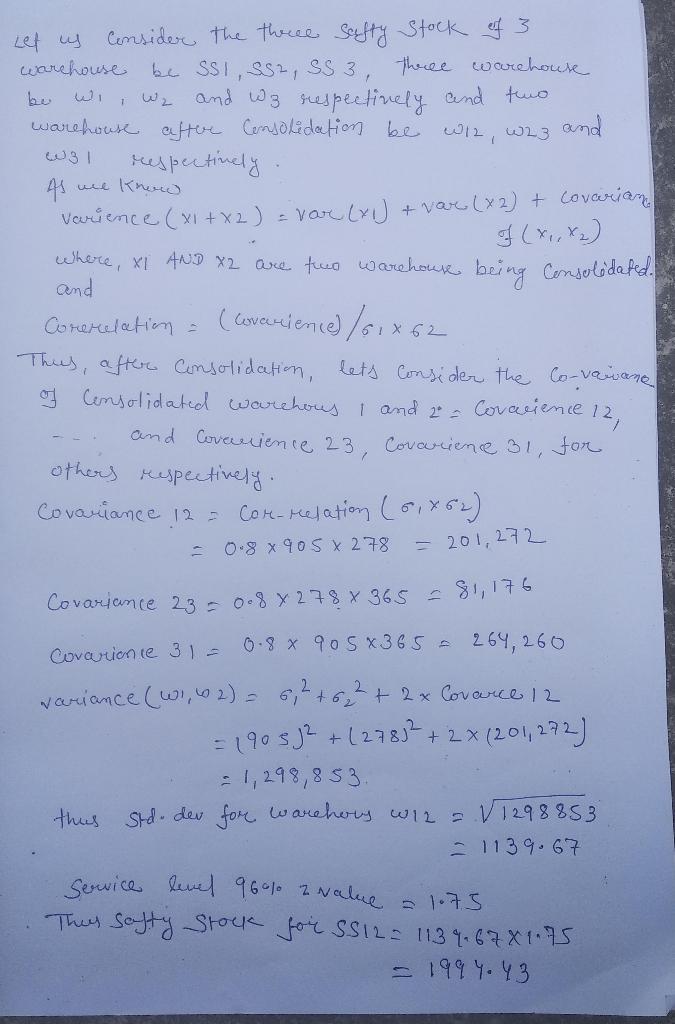 Let us Consider the three Safty Stock of 3
warehouse be SS1, SS2, SS3, three warehouse
be W1, W2 and W3 respectively and two
warehouse after Consolidation be W12, W23 and
W31 respectively.
As we Know
varience (X1 + X2) = var (X1) + var (X2) + Covariance
of (X1, X2)
where, X1 AND X2 are two warehouse being Consolidated.
and
Correlation = (Covarience) / σ1 × σ2
Thus, after Consolidation, lets Consider the Co-variance
of Consolidated warehous 1 and 2 = Covarience 12,
--. and Covarience 23, Covarience 31, for
others respectively.
Covariance 12 = Cor-relation (σ1 × σ2)
= 0.8 × 905 × 278 = 201,272
Covariance 23 = 0.8 × 278 × 365 = 81,176
Covarience 31 = 0.8 × 905 × 365 = 264,260
variance (W1, W2) = σ1² + σ2² + 2 × Covarce 12
= (905)² + (278)² + 2 × (201,272)
= 1,298,853.
thus Std. dev for warehous W12 = √1298853
= 1139.67
Service level 96% z value = 1.75
Thus Safty Stock for SS12 = 1139.67 × 1.75
= 1994.43